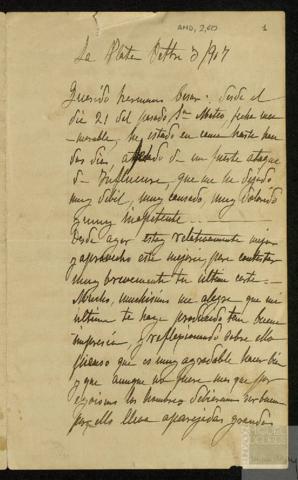 AMD, 2,60
1
La Plata Octbre 3/907
Querido hermano Cesar: desde el
dia 21 del pasado Sn Mateo, fecha me-
morable, he estado en cama hasta hace
dos dias, atacado de un fuerte ataque
de Influenza, que me ha dejado
muy debil, muy cansado, muy dolorido
y muy inapetente.
Desde ayer estoy relativamente mejor
y aprovecho esta mejoria, para contestar
muy brevemente tu última carta.
Mucho, muchisimo me alegra que mi
última te haya producido tan buena
impresión, y reflexionando sobre ello
pienso que es muy agradable hacer bien
y que aunque no fuera mas que por
egoismo los hombres deberian ser buenos
pues ello lleva aparejadas grandes